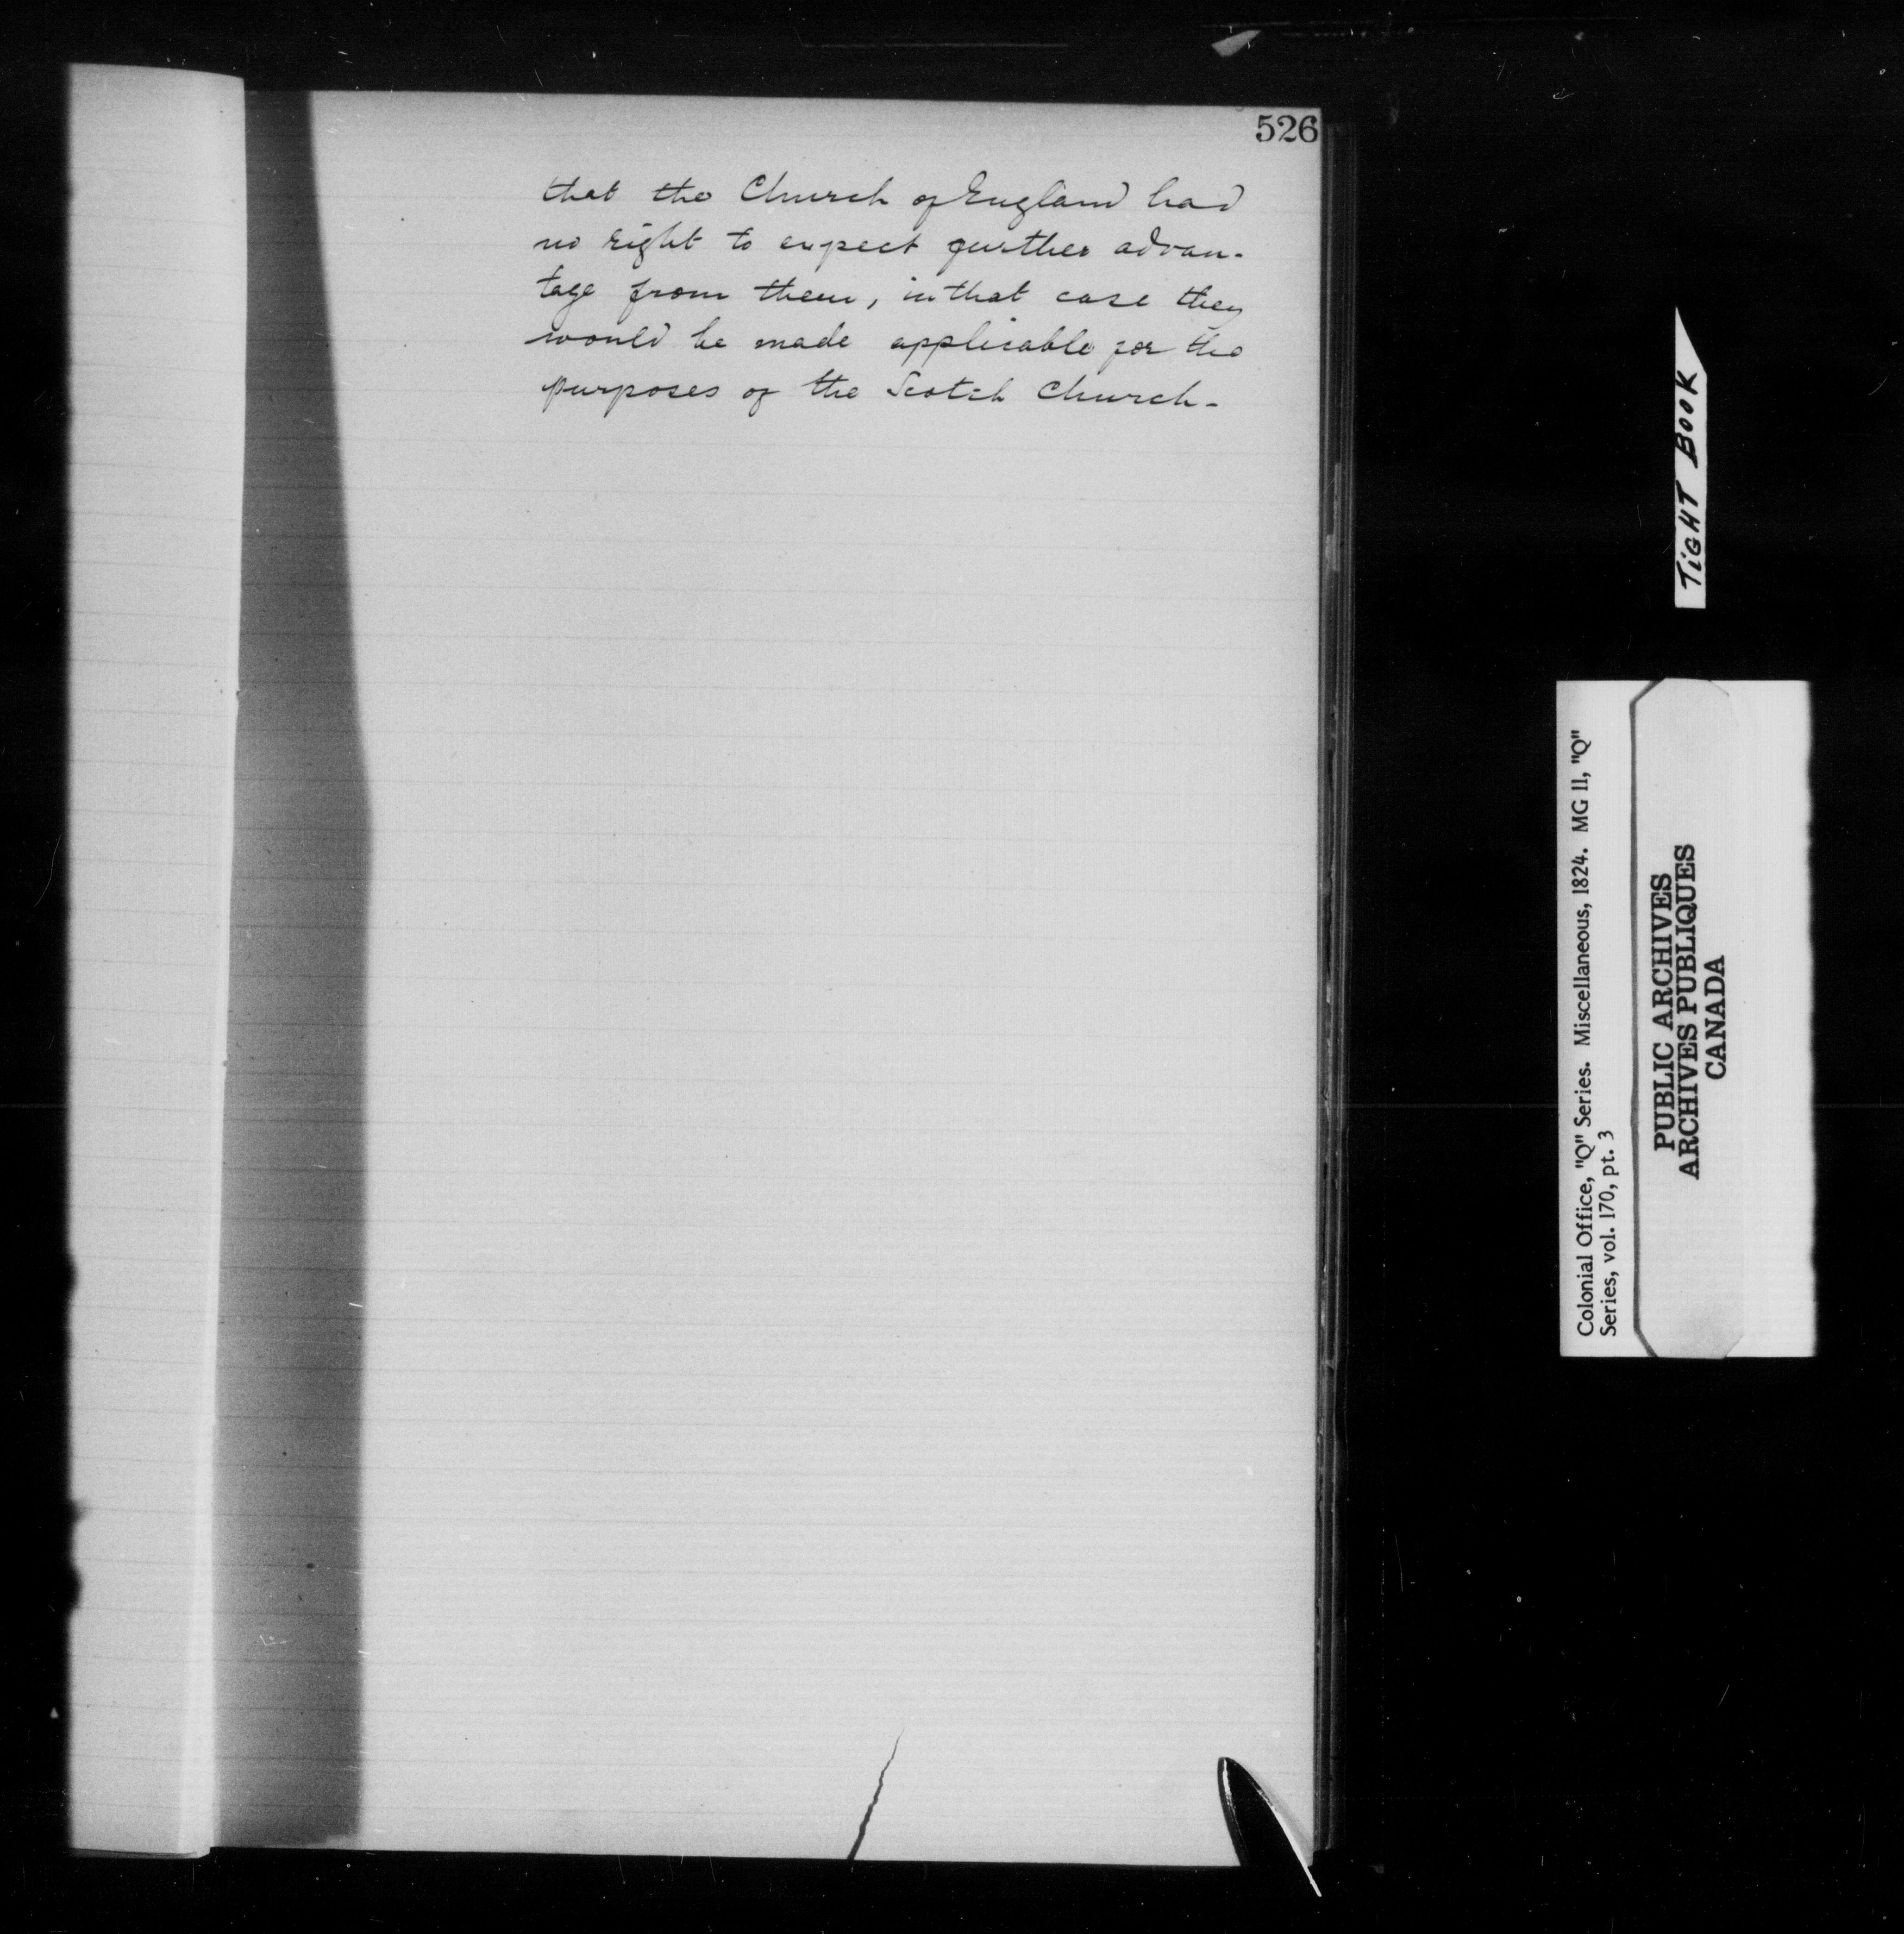 526
that the Church of England had
no right to expect further advan-
tage from them, in that case they
would be made applicable for the
purposes of the Scotch Church-
TIGHT BOOK
Colonial Office, "Q" Series. Miscellaneous, 1824. MG 11, "Q"
Series, vol. 170, pt. 3
PUBLIC ARCHIVES
ARCHIVES PUBLIQUES
CANADA